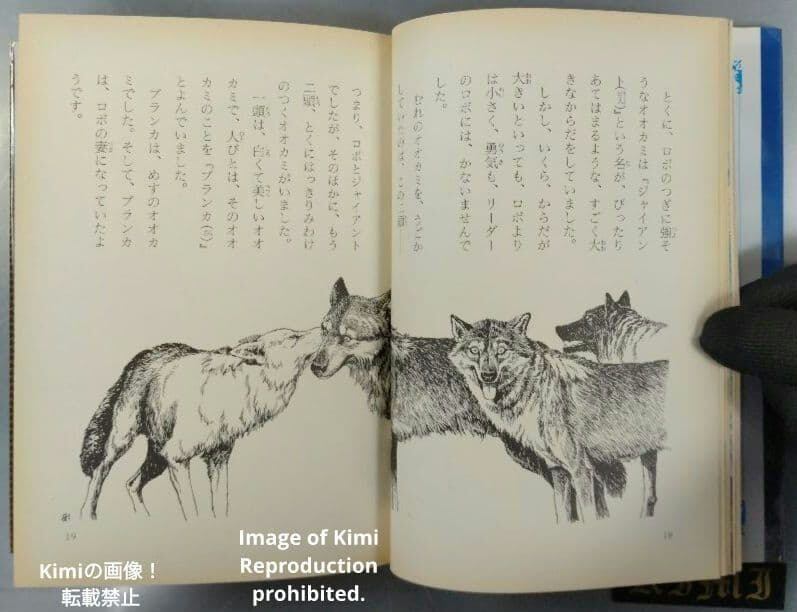 とくに、ロボのつぎに強そ
うなオオカミは『ジャイアン
ト』という名が、ぴったり
あてはまるような、すごく大
きなからだをしていました。
しかし、いくら、からだが
大きいといっても、ロボより
は小さく、勇気も、リーダー
のロボには、かないませんで
した。
むれのオオカミを、うごか
していたのは、この二頭――
18
つまり、ロボとジャイアント
でしたが、そのほかに、もう
二頭、とくにはっきりみわけ
のつくオオカミがいました。
一頭は、白くて美しいオオ
カミで、人びとは、そのオオ
カミのことを『ブランカ』
とよんでいました。
ブランカは、めすのオオカ
ミでした。そして、ブランカ
は、ロボの妻になっていたよ
うです。
19
Kimiの画像！
転載禁止
Image of Kimi
Reproduction
prohibited.
KIMI